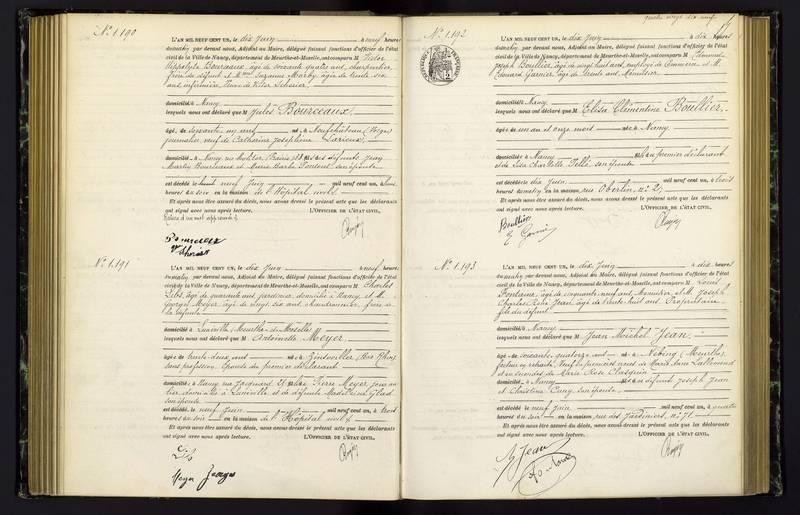 N° 1.190
L'AN MIL NEUF CENT UN, le dix Juin à neuf heures
du matin par devant nous, Adjoint au Maire, délégué faisant fonctions d'officier de l'état
civil de la Ville de Nancy, département de Meurthe-et-Moselle, ont comparu M Victor
Hippolyte Bourceaux, âgé de soixante quatre ans, charpentier
frère du défunt et Mme Suzanne Marby, âgée de trente six
ans infirmière
domicilié à Nancy
lesquels nous ont déclaré que M Jules Bourceaux.
âgé de soixante un ans né à Neufchâteau (Vosges)
journalier, veuf de Catherine Joséphine Larieux.
domicilié à Nancy fils des défunts Jean
Martin Bourceaux et Marie Barbe
est décédé le neuf Juin mil neuf cent un, à
heures du soir en la maison de l'Hôpital civil.
Et après nous être assuré du décès, nous avons dressé le présent acte que les déclarants
ont signé avec nous après lecture. L'OFFICIER DE L'ÉTAT CIVIL,
Bourceaux
N° 1.191
L'AN MIL NEUF CENT UN, le dix Juin à neuf heures
du matin par devant nous, Adjoint au Maire, délégué faisant fonctions d'officier de l'état
civil de la Ville de Nancy, département de Meurthe-et-Moselle, ont comparu M Charles
âgé de quarante ans, jardinier, domicilié à Nancy, et M.
Georges Meyer, âgé de vingt six ans, chaudronnier, frère de
la défunte
domicilié à Lunéville Meurthe & Moselle
lesquels nous ont déclaré que M Antoinette Meyer.
âgée de trente deux ans née à Zinswiller (Bas Rhin)
sans profession. Epouse du premier déclarant.
domiciliée à Nancy rue Jacquard fille de Pierre Meyer, journalier
domicilié à Lunéville et de défunte Madeleine
est décédée le neuf Juin mil neuf cent un, à trois
heures du soir en la maison de l'Hôpital civil.
Et après nous être assuré du décès, nous avons dressé le présent acte que les déclarants
ont signé avec nous après lecture. L'OFFICIER DE L'ÉTAT CIVIL,
Meyer Georges
quatre vingt dix neuf
N° 1.192
L'AN MIL NEUF CENT UN, le dix Juin à dix heures
du matin par devant nous, Adjoint au Maire, délégué faisant fonctions d'officier de l'état
civil de la Ville de Nancy, département de Meurthe-et-Moselle, ont comparu M Edmond
Joseph Boullier, âgé de vingt huit ans, employé de Commerce et M.
Edouard Garnier, âgé de trente ans, Menuisier.
domicilié Nancy.
lesquels nous ont déclaré que M Elisa Clémentine Boullier.
âgée de un an et onze mois née à Nancy.
domiciliée à Nancy fille du premier déclarant
et de Lise Charlotte
est décédée le dix Juin. mil neuf cent un, à trois
heures du matin en la maison, rue Oberlin, n° 27.
Et après nous être assuré du décès, nous avons dressé le présent acte que les déclarants
ont signé avec nous après lecture. L'OFFICIER DE L'ÉTAT CIVIL,
Boullier
E Garnier
N° 1.193
L'AN MIL NEUF CENT UN, le dix Juin à dix heures
du matin par devant nous, Adjoint au Maire, délégué faisant fonctions d'officier de l'état
civil de la Ville de Nancy, département de Meurthe-et-Moselle, ont comparu M Louis
Fontaine, âgé de cinquante neuf ans, Menuisier, et M. Joseph
Charles Jean, âgé de trente huit ans, Propriétaire
fils du défunt
domicilié à Nancy.
lesquels nous ont déclaré que M Jean Michel Jean.
âgé de soixante quatorze ans né à Nébing (Meurthe)
facteur en retraite, Veuf en premières noces de Marie Anne Lallemand
et en secondes de Marie Rose
domicilié à Nancy fils des défunts Joseph Jean
et Christine Cuny
est décédé le neuf Juin mil neuf cent un, à quatre
heures du soir en la maison, rue des Jardiniers, n° 71.
Et après nous être assuré du décès, nous avons dressé le présent acte que les déclarants
ont signé avec nous après lecture. L'OFFICIER DE L'ÉTAT CIVIL,
Jean
Fontaine